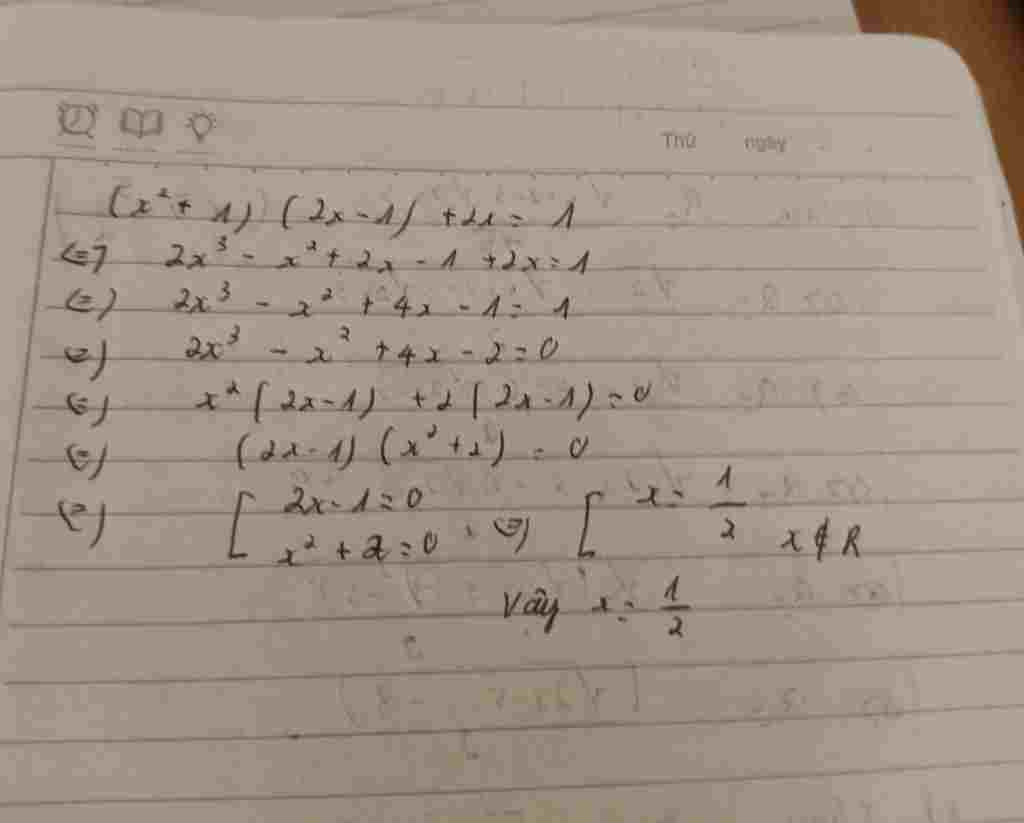 Thứ ngày
(x² + 1) (2x - 1) + 2x = 1
<=> 2x³ - x² + 2x - 1 + 2x = 1
<=> 2x³ - x² + 4x - 1 = 1
<=> 2x³ - x² + 4x - 2 = 0
<=> x² (2x - 1) + 2 (2x - 1) = 0
<=> (2x - 1) (x² + 2) = 0
<=> [ 2x - 1 = 0 <=> [ x = 1/2
x² + 2 = 0 x ∉ R
Vậy x = 1/2